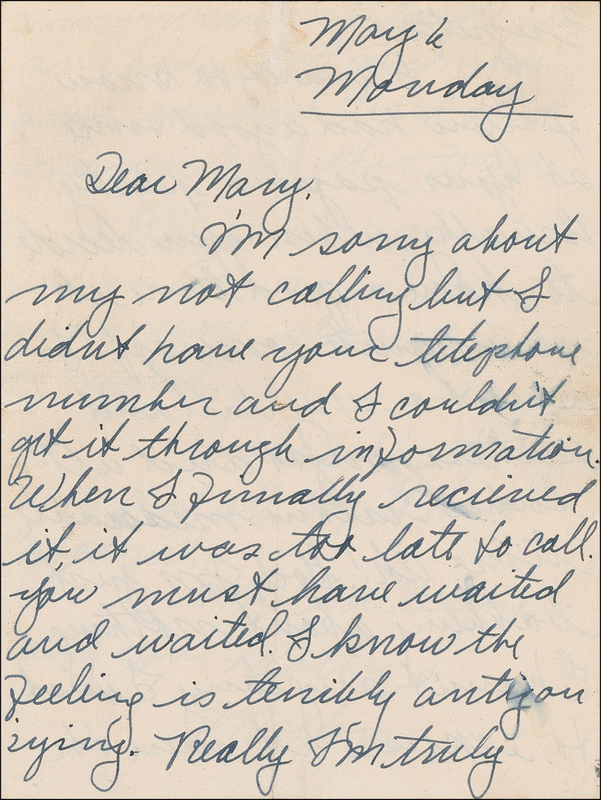 May 6
Monday
Dear Mary,
I'm sorry about
my not calling but I
didn't have your telephone
number and I couldn't
get it through information.
When I finnally recieved
it it was too late to call.
you must have waited
and waited. I know the
feeling is terribly antigon
izing. Really I'm truly